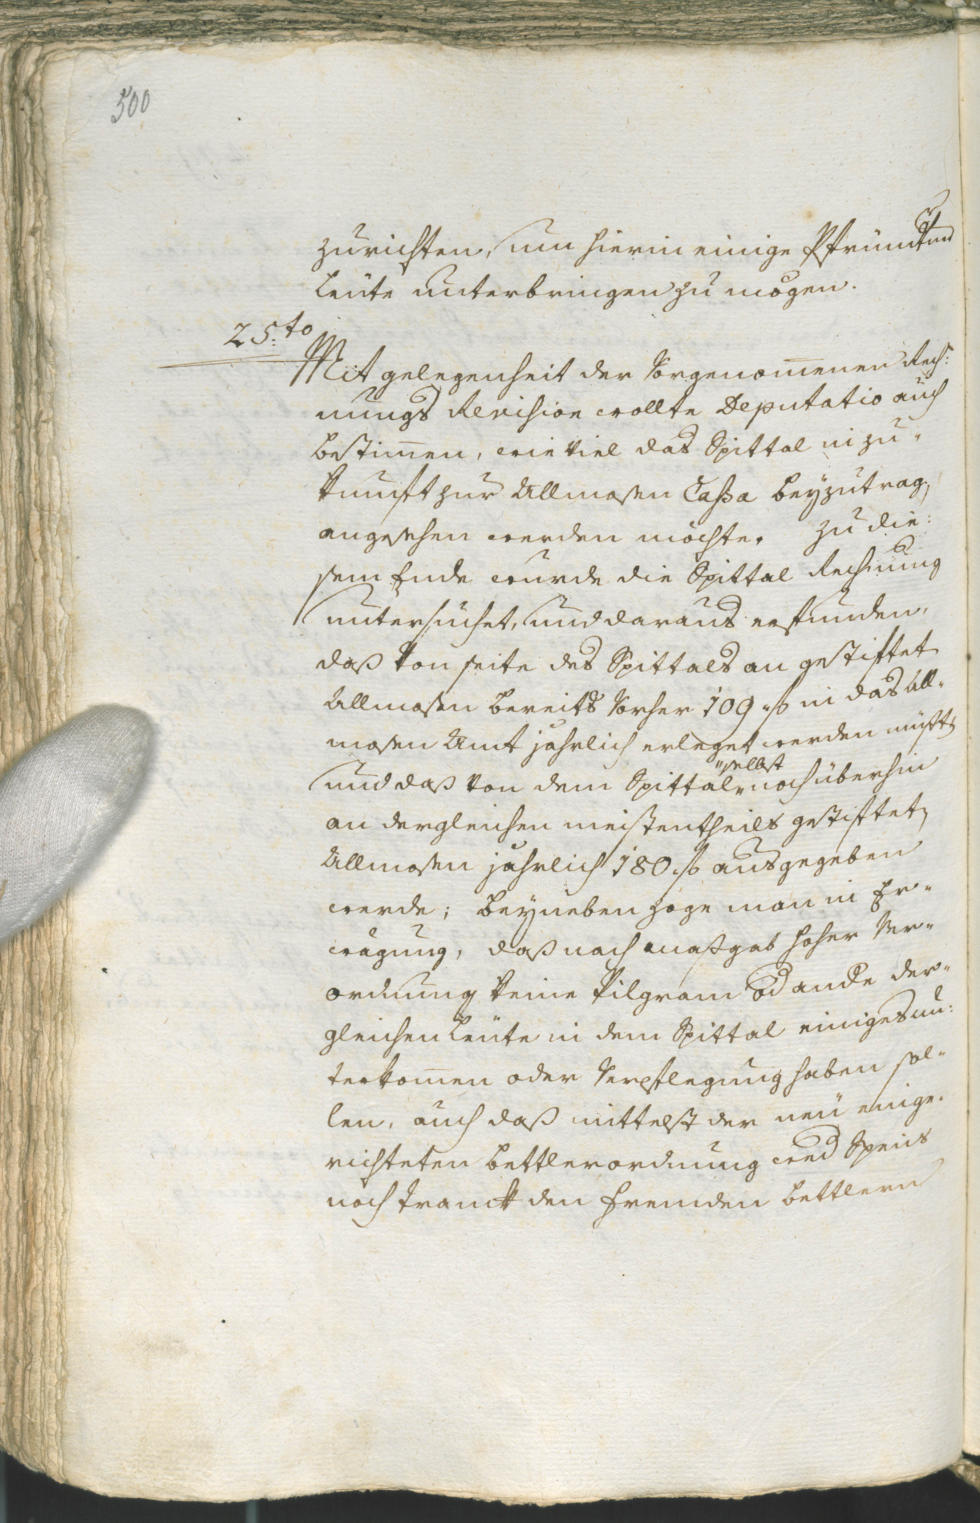 500
zurichten, um hierin einige Pfründten
Leüte unterbringen zu mögen.
25.to
Mit gelegenheit der vorgenom̄enen Rech:
nungs Revision wollte Deputatio auch
bestim̄en, wie viel das Spittal in zu-
kunft zur Allmosen Caßa beyzutrag,
angesehen werden möchte. Zu die:
sem Ende wurde die Spittal Rechnung
untersuchet, und daraus erfunden,
daß von seite des Spittals an gestiftet
Allmosen bereits vorher 109 fl in das All-
mosen Amt jährlich erleget werden müste
und daß von dem Spittal selbst noch überhin
an dergleichen meistentheils gestiftet
Allmosen jährlich 180 fl ausgegeben
werde; beyneben zoge man in Er-
wägung, daß nach maßgab hoher Ver-
ordnung keine Pilgram od ande der-
gleichen Leüte in dem Spittal einiges un:
terkom̄en oder Verpflegung haben sol-
len, auch daß mittelst der neü einge-
richteten bettlerordnung wed Speis
noch tranck den fremden bettlern